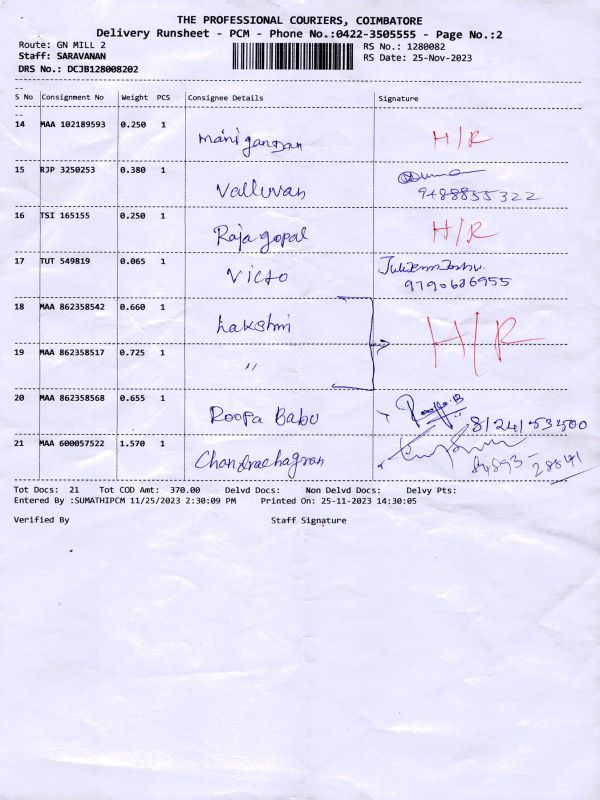 THE PROFESSIONAL COURIERS, COIMBATORE
Delivery Runsheet - PCM - Phone No.:0422-3505555 - Page No.:2
Route: GN MILL 2 RS No.: 1280082
Staff: SARAVANAN RS Date: 25-Nov-2023
DRS No.: DCJB128008202
S No Consignment No Weight PCS Consignee Details Signature
14 MAA 102189593 0.250 1 Manigandan H/R
15 RJP 3250253 0.380 1 Valluvan
9488855322
16 TSI 165155 0.250 1 Rajagopal H/R
17 TUT 549819 0.065 1 Victo
9790686955
18 MAA 862358542 0.660 1 Lakshmi H/R
19 MAA 862358517 0.725 1 "
20 MAA 862358568 0.655 1 Roopa Babu
21 MAA 600057522 1.570 1
Tot Docs: 21 Tot COD Amt: 370.00 Delvd Docs: Non Delvd Docs: Delvy Pts:
Entered By :SUMATHIPCM 11/25/2023 2:30:09 PM Printed On: 25-11-2023 14:30:05
Verified By Staff Signature